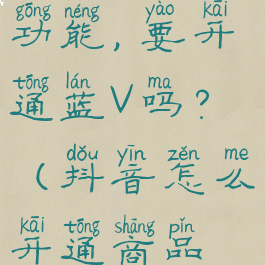 gōng néng yào kāi
功能,要开
tōng lán ma
通蓝V吗?
dǒu yīn zěn me
(抖音怎么
kāi tōng shāng pǐn
开通商品